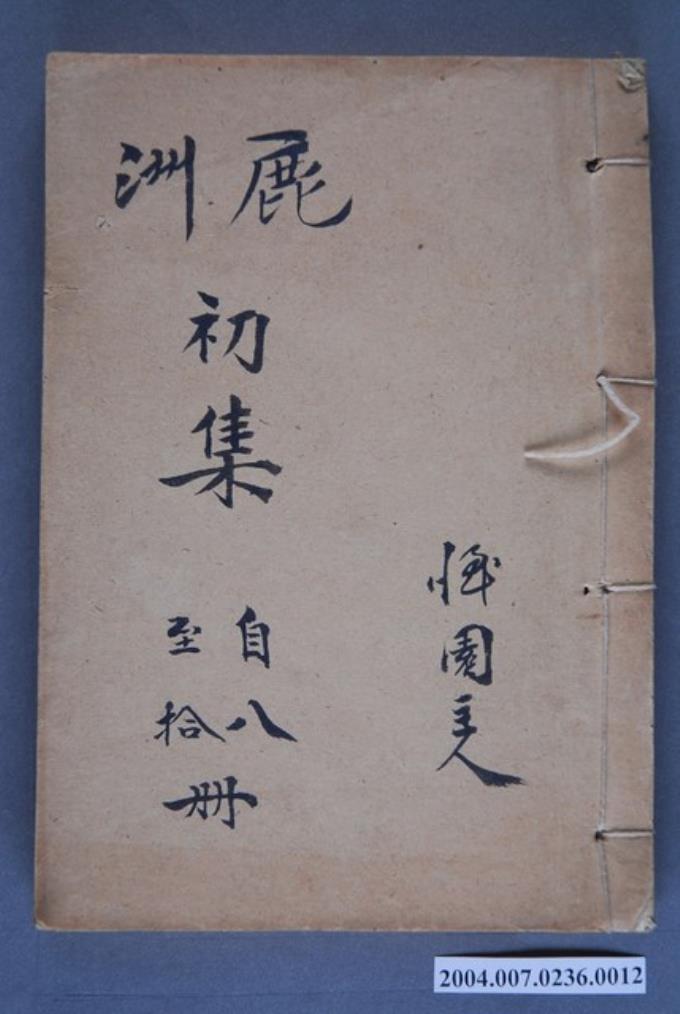 鹿洲
初集
自八
至拾
冊
園主人
2004.007.0236.0012